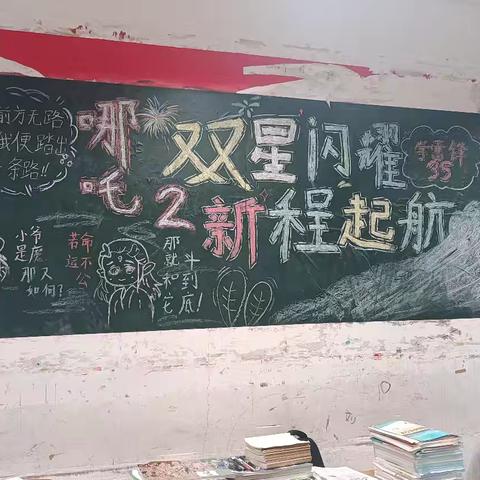 前方无路
我便踏出
条路!!
哪吒2
双星闪耀
新程起航
学雷锋
35
小爷
是魔
那又
如何?
若命
运不公
那就和它
斗到底!